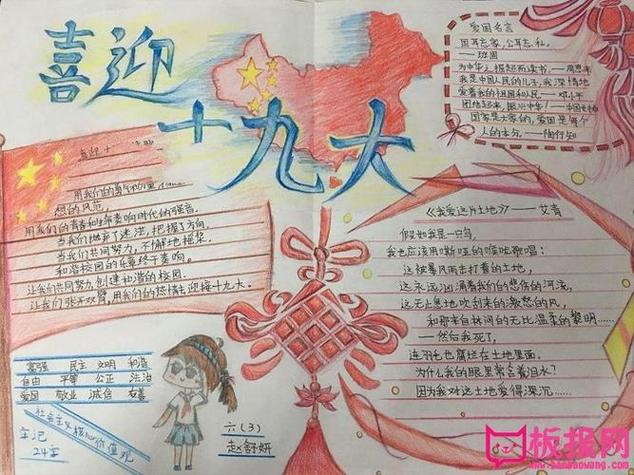 喜迎
十九大
爱国名言
国耳忘家,公耳忘私。
——班固
为中华之崛起而读书——周恩来
我是中国人民的儿子,我深情地
爱着我的祖国和人民——邓小平
团结起来,振兴中华!
国家是大家的,爱国是每个
人的本分。——陶行知
喜迎十
用我们的
想的风范,
用我们的青春和
奏响时代的强音。
当我们
把握了方向,
当我们共同努力,不懈地摇桨,
和谐校园的乐章终于奏响。
让我们共同努力,创建和谐的校园。
让我们张开双臂,用我们的热情去迎接十九大。
《我爱这片土地》——艾青
假如我是一只鸟,
我也应该用嘶哑的喉咙歌唱:
这被暴风雨击打着的土地,
这永远汹涌着我们的悲愤的河流,
这无止息地吹刮来的激怒的风,
和那来自林间的无比温柔的黎明……
——然后我死了,
连羽毛也腐烂在土地里面。
为什么我的眼里常含着泪水?
因为我对这土地爱得深沉……
富强 民主 文明 和谐
自由 平等 公正 法治
爱国 敬业 诚信 友善
社会主义核心价值观
牢记
24字
六(3)
赵舒妍
板报网
www.banbaowang.com